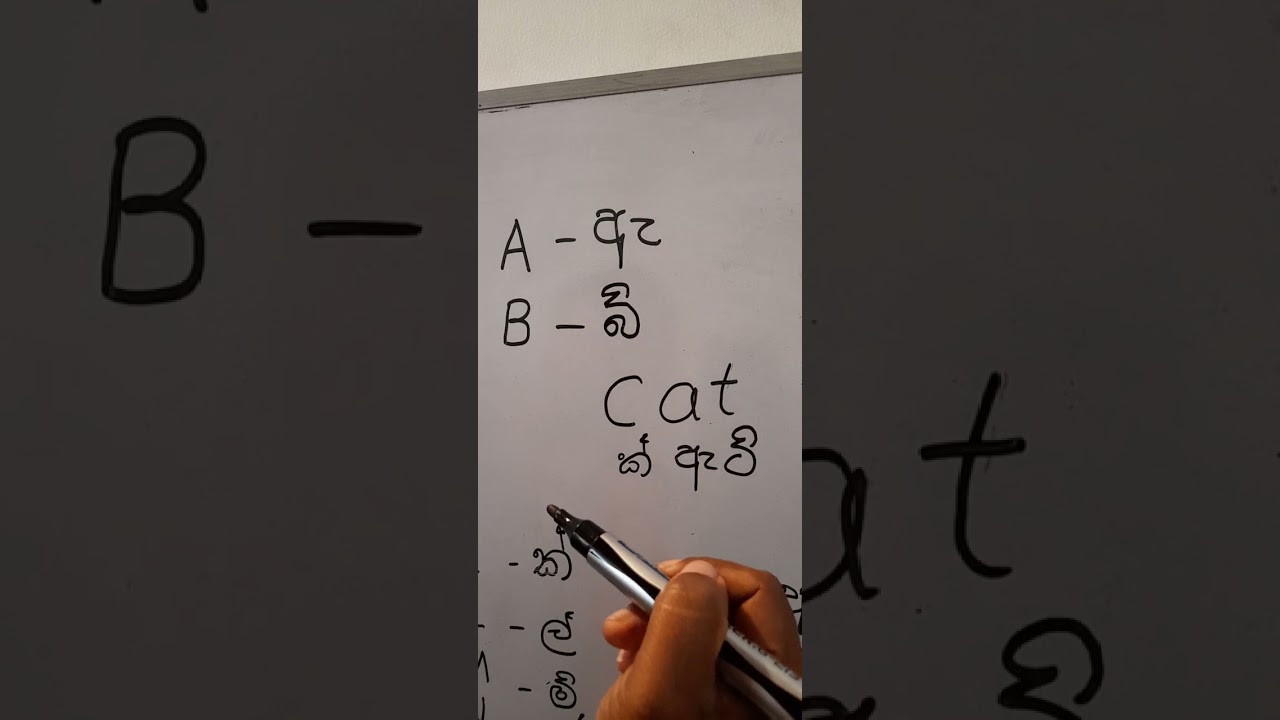 A - ඇ
B - බ්
Cat
ක් ඇට්
- ක්
- ල්
- ම්